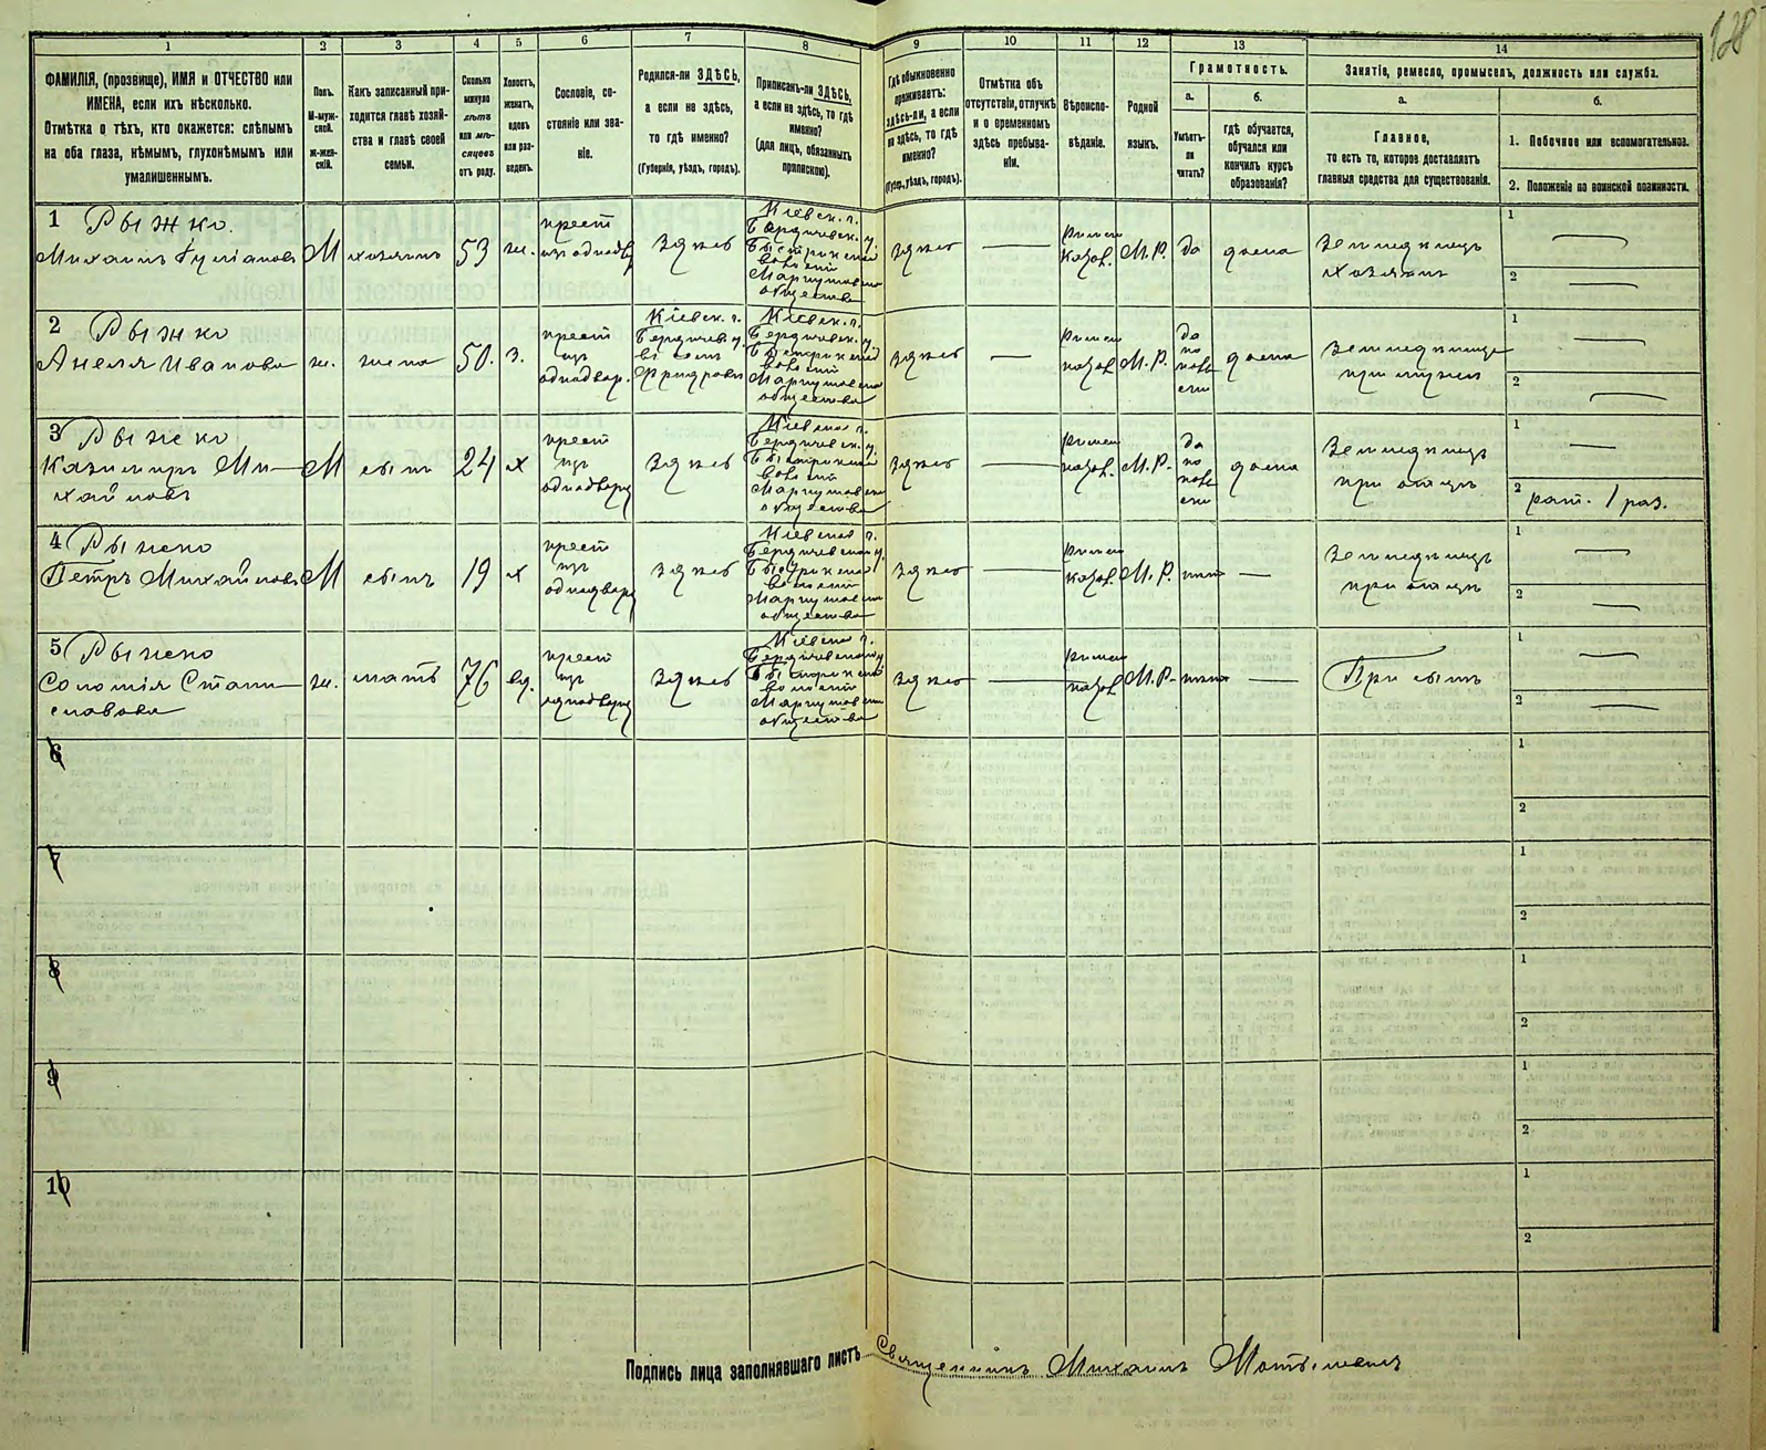 128
1
2
3
4
5
6
7
8
9
10
11
12
13
14
ФАМИЛІЯ, (прозвище), ИМЯ и ОТЧЕСТВО или
ИМЕНА, если ихъ нѣсколько.
Отмѣтка о тѣхъ, кто окажется: слѣпымъ
на оба глаза, нѣмымъ, глухонѣмымъ или
умалишеннымъ.
Полъ.
М-муж-
ской.
Ж-жен-
скій.
Какъ записанный при-
ходится главѣ хозяй-
ства и главѣ своей
семьи.
Сколько
минуло
лѣтъ
или мѣ-
сяцевъ
отъ роду.
Холостъ,
женатъ,
вдовъ
или раз-
веденъ.
Сословіе, со-
стояніе или зва-
ніе.
Родился-ли ЗДѢСЬ,
а если не здѣсь,
то гдѣ именно?
(Губернія, уѣздъ, городъ).
Приписанъ-ли ЗДѢСЬ,
а если не здѣсь, то гдѣ
именно?
(для лицъ, обязанныхъ
припискою).
Гдѣ обыкновенно
проживаетъ:
здѣсь-ли, а если
не здѣсь, то гдѣ
именно?
(Губер., уѣздъ, городъ).
Отмѣтка объ
отсутствіи, отлучкѣ
и о временномъ
здѣсь пребыва-
ніи.
Вѣроиспо-
вѣданіе.
Родной
языкъ.
Грамотность.
а.
Умѣетъ-
ли
читать?
б.
гдѣ обучается,
обучался или
кончилъ курсъ
образованія?
Занятіе, ремесло, промыселъ, должность или служба.
а.
Главное,
то есть то, которое доставляетъ
главныя средства для существованія.
б.
1. Побочное или вспомогательное.
2. Положеніе по воинской повинности.
1 Рыжко.
Михаилъ
М
хозяинъ
53
ж.
крест
изъ однодв
здѣсь
Кіевск. г.
Бердичевск. у.
волости
общества
здѣсь
римск
катол.
М.Р.
да
дома
земледѣлецъ
хозяинъ
1
2
2 Рыжко
Анеля Иванова
ж.
жена
50.
з.
крест
изъ
однодвор.
Кіевск. г.
Бердичев. у.
Кіевск. г.
Бердичевск. у.
волости
общества
здѣсь
римск
катол
М.Р.
да
по
дома
при мужѣ
1
2
3 Рыжко
Казимиръ Ми-
хайловъ
М
сынъ
24
х
крест
изъ
однодворц
здѣсь
г.
Бердичевск. у.
волости
общества
здѣсь
римск
катол.
М.Р.
да
по
дома
земледѣлецъ
при отцѣ
1
2
рат. 1 раз.
4 Рыжко
Петръ Михайловъ
М
сынъ
19
х
крест
изъ
однодворц
здѣсь
г.
волости
общества
здѣсь
римск
катол.
М.Р.
земледѣлецъ
при отцѣ
1
2
5 Рыжко
Соломія Стани-
славова
ж.
мать
76
вд.
крест
изъ
однодворц
здѣсь
г.
волости
общества
здѣсь
римск
катол
М.Р.
При сынѣ
1
2
6
1
2
7
1
2
8
1
2
9
1
2
10
1
2
Подпись лица заполнявшаго листъ Священникъ Михаилъ